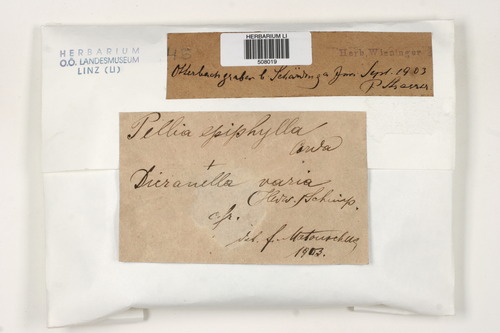 HERBARIUM
O.Ö. LANDESMUSEUM
LINZ (LI)
HERBARIUM LI
508019
Herb. Wieninger
Otterbachgraben b. Schärding a. Inn Sept. 1903
Pellia epiphylla
+
Dicranella varia
(Hdw.) Schimp.
c. fr.
det. f. Matouschek
1903.